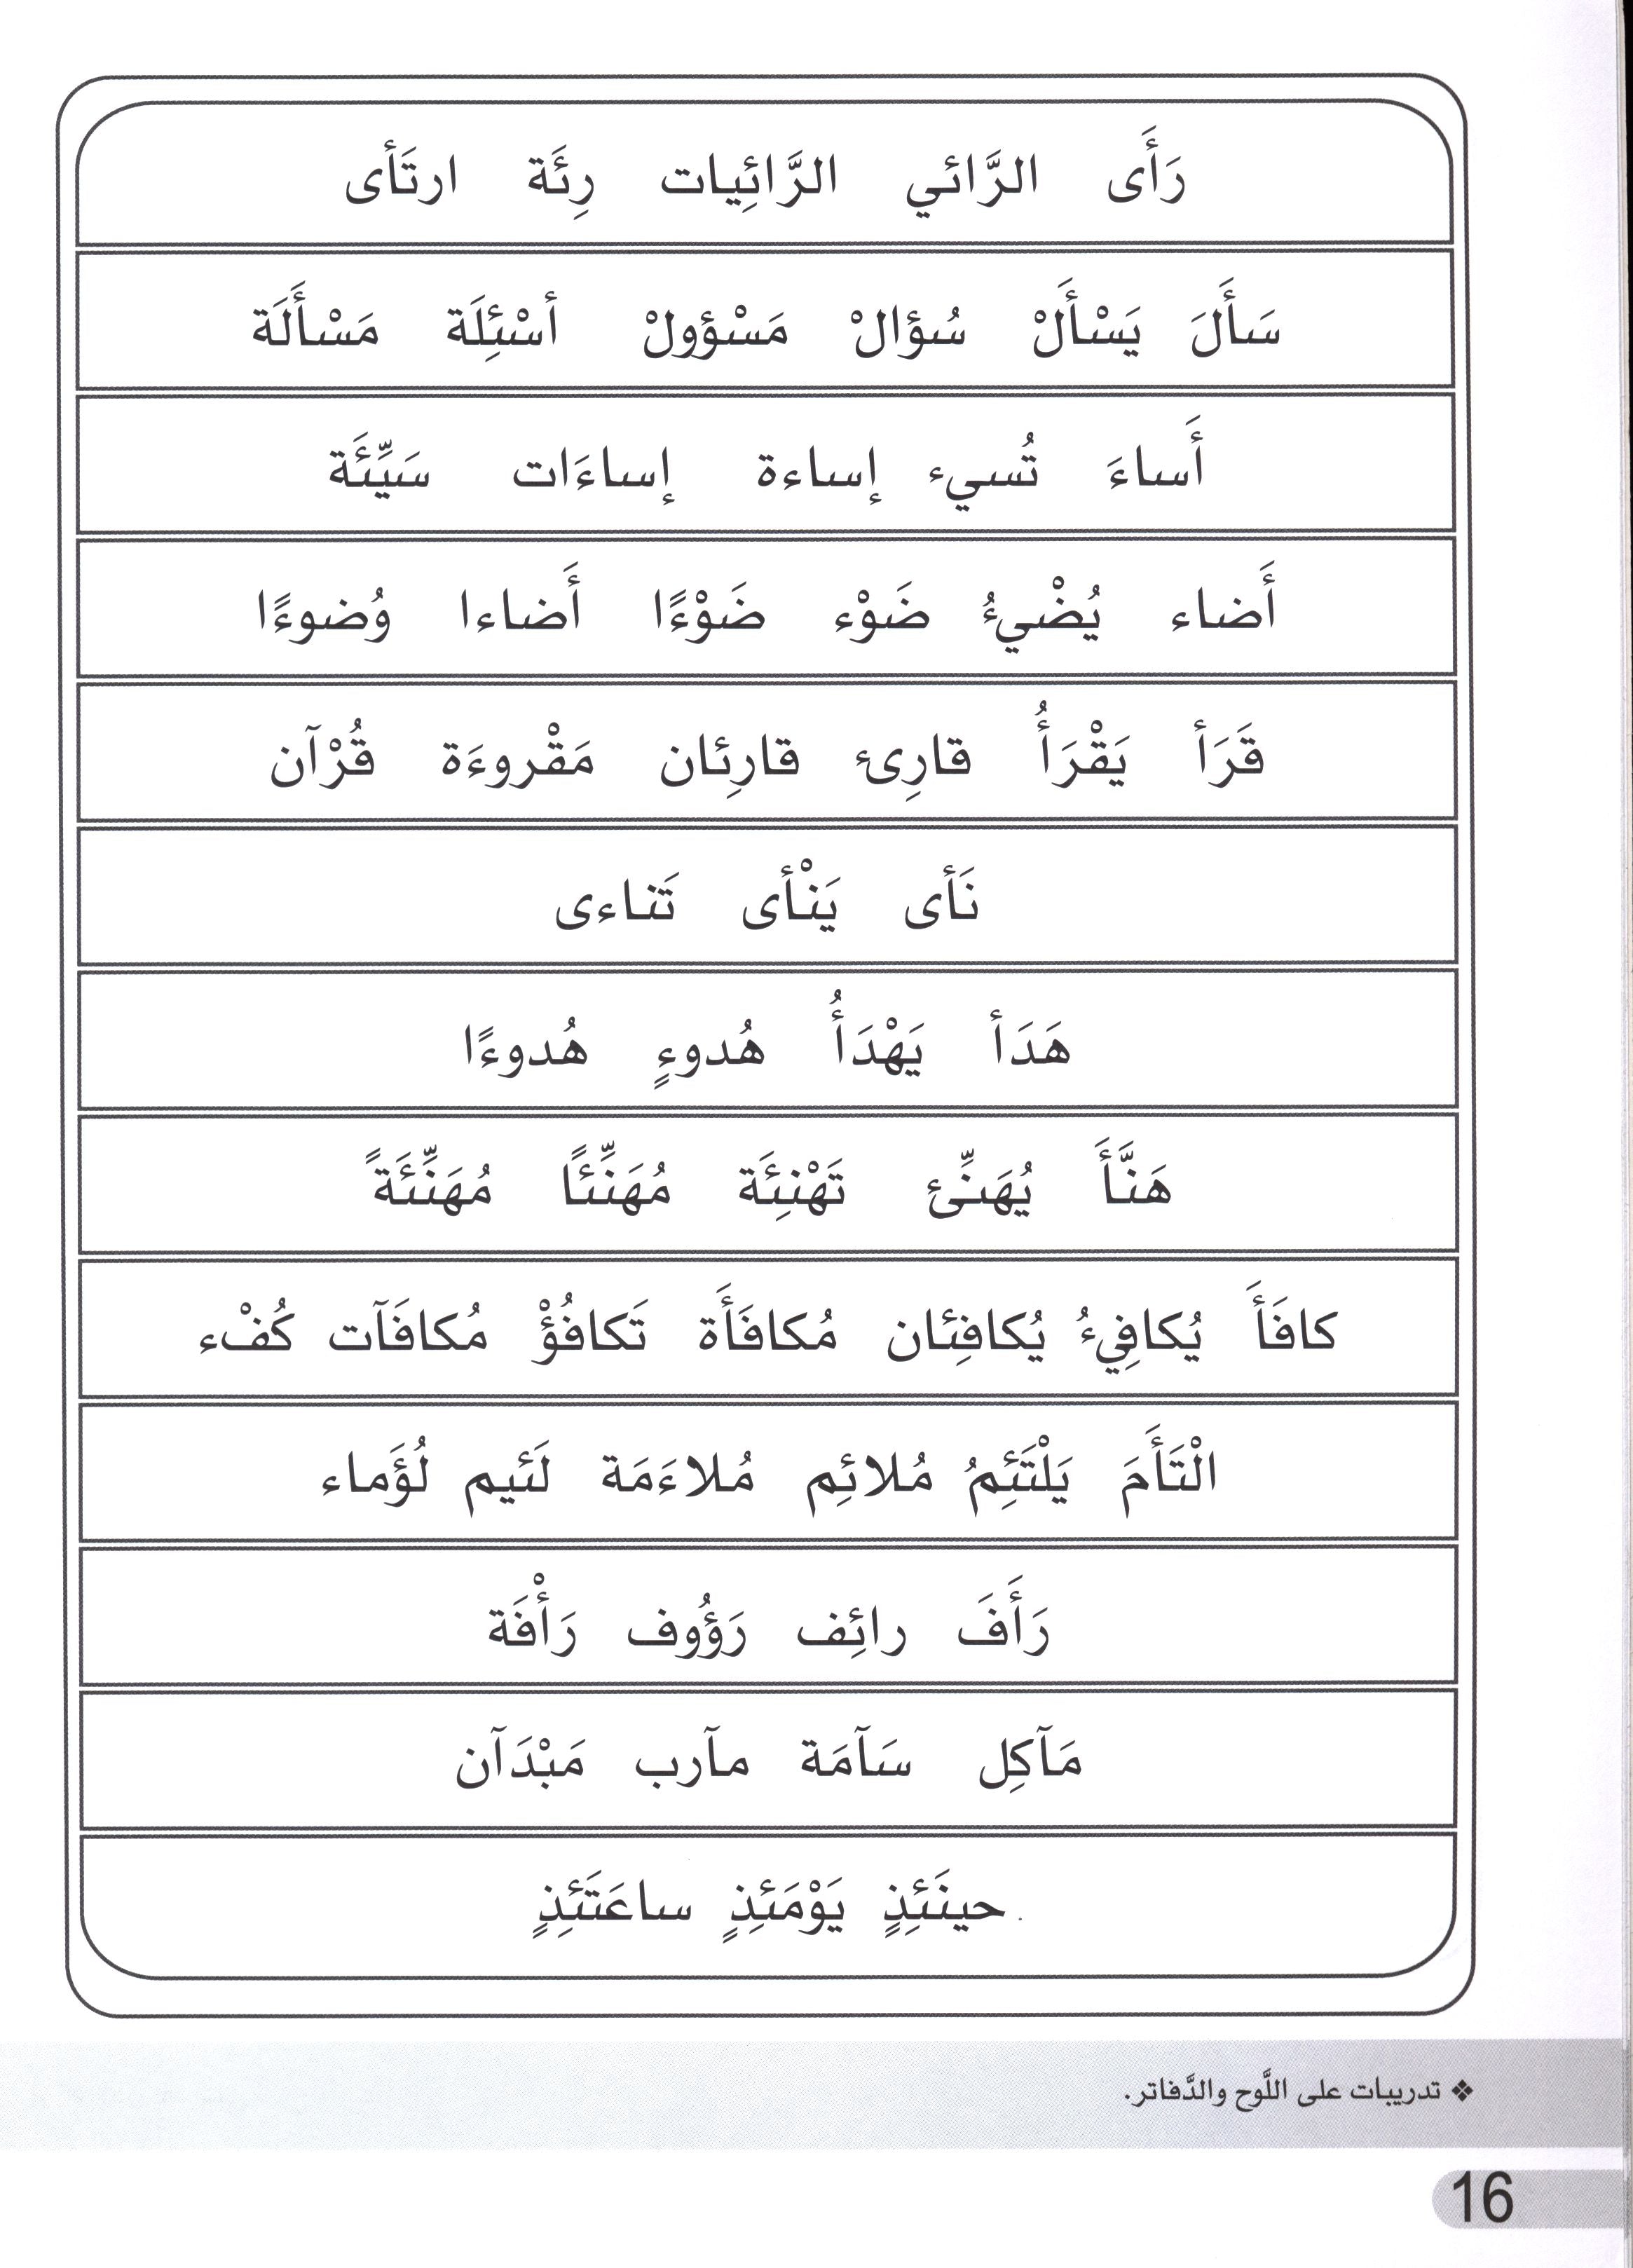 رَأَى الرَّائي الرَّائِيات رِئَة ارتَأى
سَأَلَ يَسْأَلْ سُؤالْ مَسْؤولْ أسْئِلَة مَسْأَلَة
أَساءَ تُسيء إساءة إساءَات سَيِّئَة
أَضاء يُضْيءُ ضَوْء ضَوْءًا أَضاءا وُضوءًا
قَرَأ يَقْرَأُ قارِئ قارِئان مَقْروءَة قُرْآن
نَأى يَنْأى تَناءى
هَدَأ يَهْدَأُ هُدوءٍ هُدوءًا
هَنَّأَ يُهَنِّئ تَهْنِئَة مُهَنِّئًا مُهَنِّئَةً
كافَأَ يُكافِيءُ يُكافِئان مُكافَأَة تَكافُؤْ مُكافَآت كُفْء
الْتَأَمَ يَلْتَئِمُ مُلائِم مُلاءَمَة لَئيم لُؤَماء
رَأَفَ رائِف رَؤُوف رَأْفَة
مَآكِل سَآمَة مآرب مَبْدَآن
حينَئِذٍ يَوْمَئِذٍ ساعَتَئِذٍ
❖ تدريبات على اللَّوح والدَّفاتر.
16